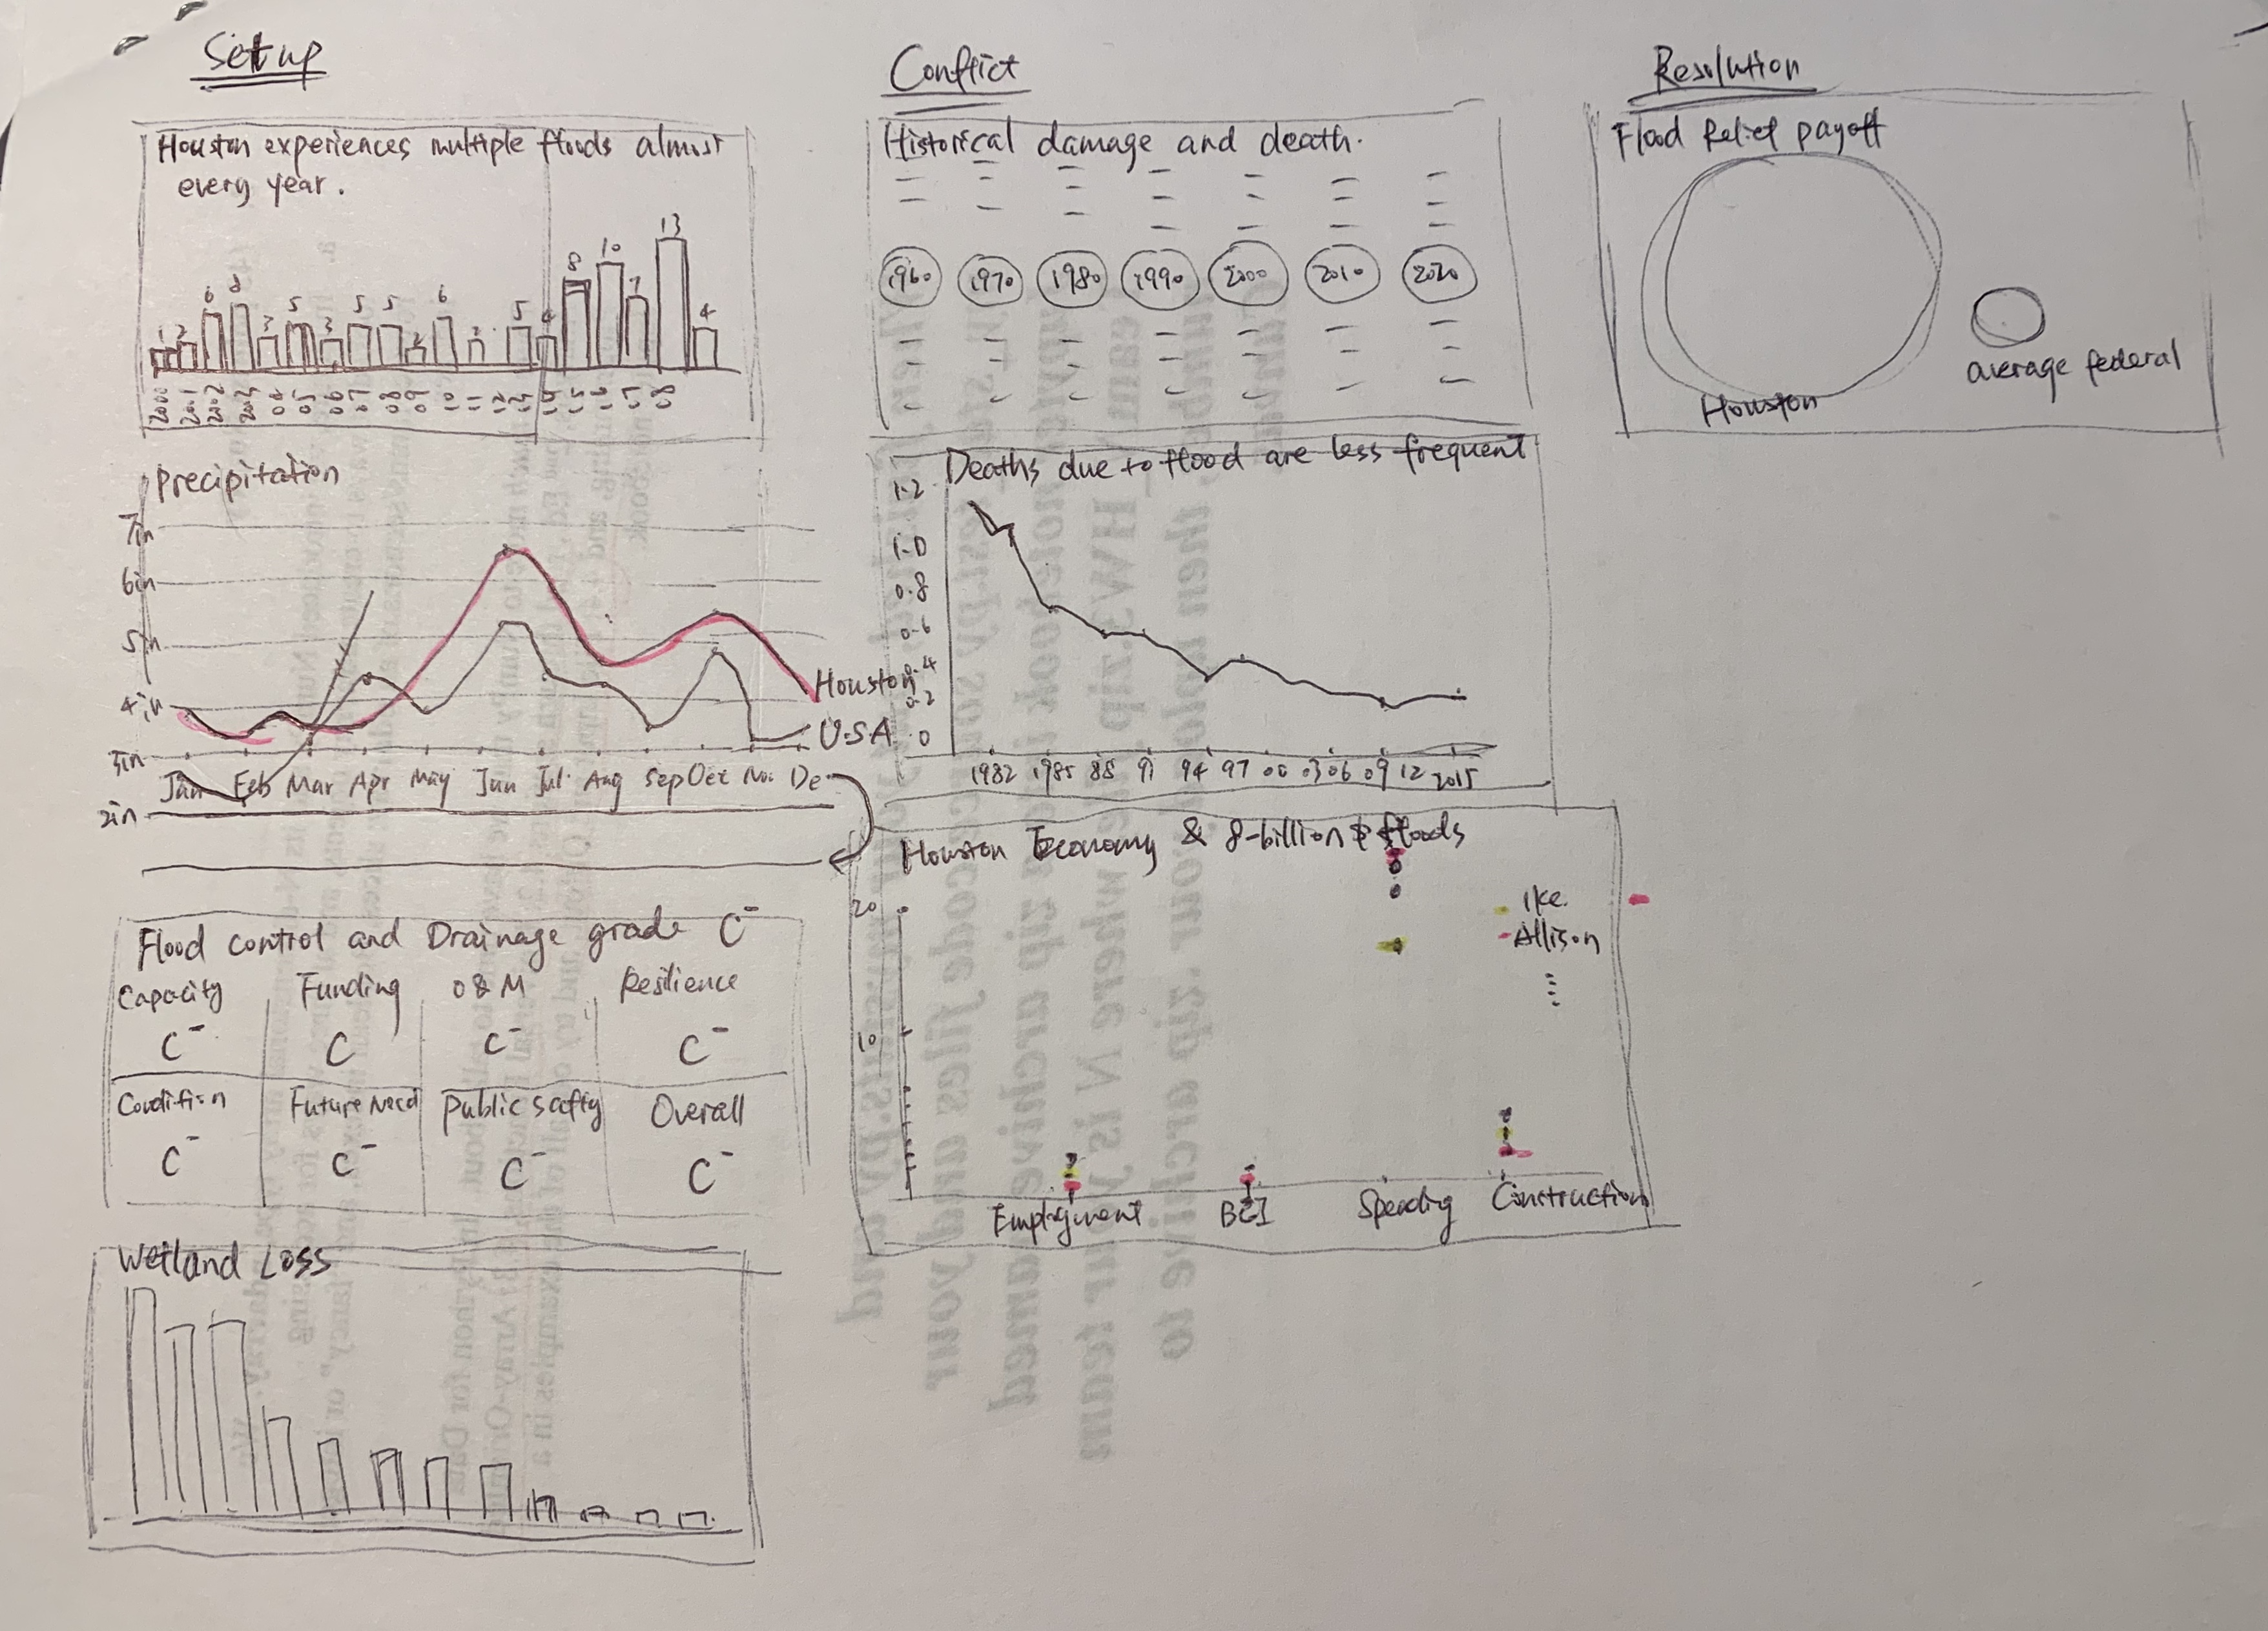 Setup
Houston experiences multiple floods almost
every year.
1 2 6 8 3 5 3 5 5 2 6 2 5 4 8 10 7 13 4
2000 2001 2002 2003 04 05 06 07 08 09 10 11 12 13 14 15 16 17 18
Precipitation
7in
6in
5in
4in
3in
2in
Houston
U.S.A
Jan Feb Mar Apr May Jun Jul Aug Sep Oct Nov De
Flood control and Drainage grade C-
Capacity Funding O&M Resilience
C- C C- C-
Condition Future Need Public Safty Overall
C- C- C- C-
Wetland Loss
Conflict
Historical damage and death.
1960 1970 1980 1990 2000 2010 2020
Deaths due to flood are less frequent
1.2
1.0
0.8
0.6
0.4
0.2
0
1982 1985 88 91 94 97 00 03 06 09 12 2015
Houston Economy & 8-billion $ floods
20
10
Ike.
Allison
Employment BCI Spending Construction
Resolution
Flood Relief payoff
Houston
average federal